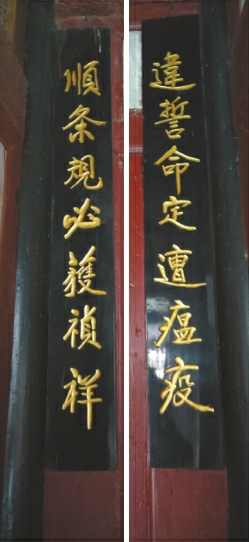 違誓命定遭瘟疫
順条規必獲禎祥